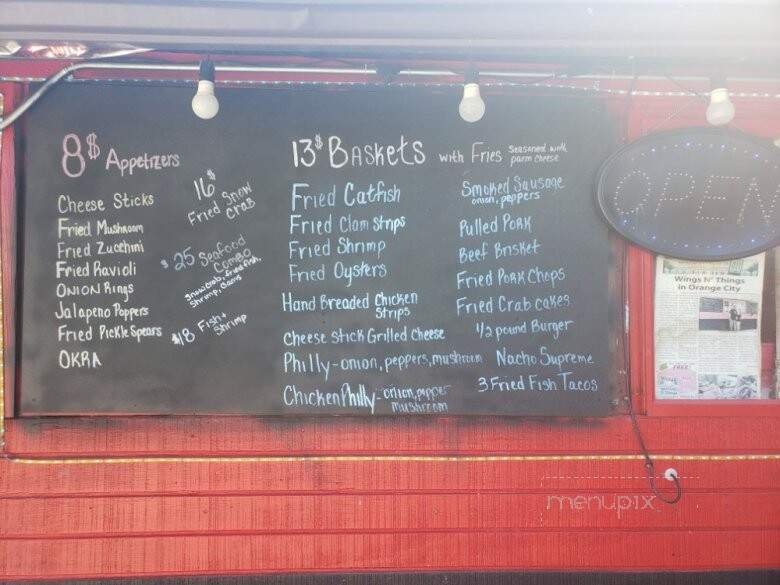 8$ Appetizers
Cheese Sticks
Fried Mushroom
Fried Zucchini
Fried Ravioli
Onion Rings
Jalapeno Poppers
Fried Pickle Spears
OKRA
16$
Fried Snow
Crab
$25 Seafood
Combo
Snow crab, fried fish,
Shrimp,
$18 Fish +
Shrimp
13$ Baskets with Fries Seasoned with
parm cheese
Fried Catfish
Fried Clam Strips
Fried Shrimp
Fried Oysters
Hand Breaded Chicken
Strips
cheese stick Grilled Cheese
Philly-onion, peppers, mushroom
Chicken Philly-onion, pepper
mushroom
Smoked Sausage
onion, peppers
Pulled Pork
Beef Brisket
Fried Pork Chops
Fried Crab cakes
1/2 pound Burger
Nacho Supreme
3 Fried Fish Tacos
OPEN
Wings N' Things
in Orange City
FREE
menupix